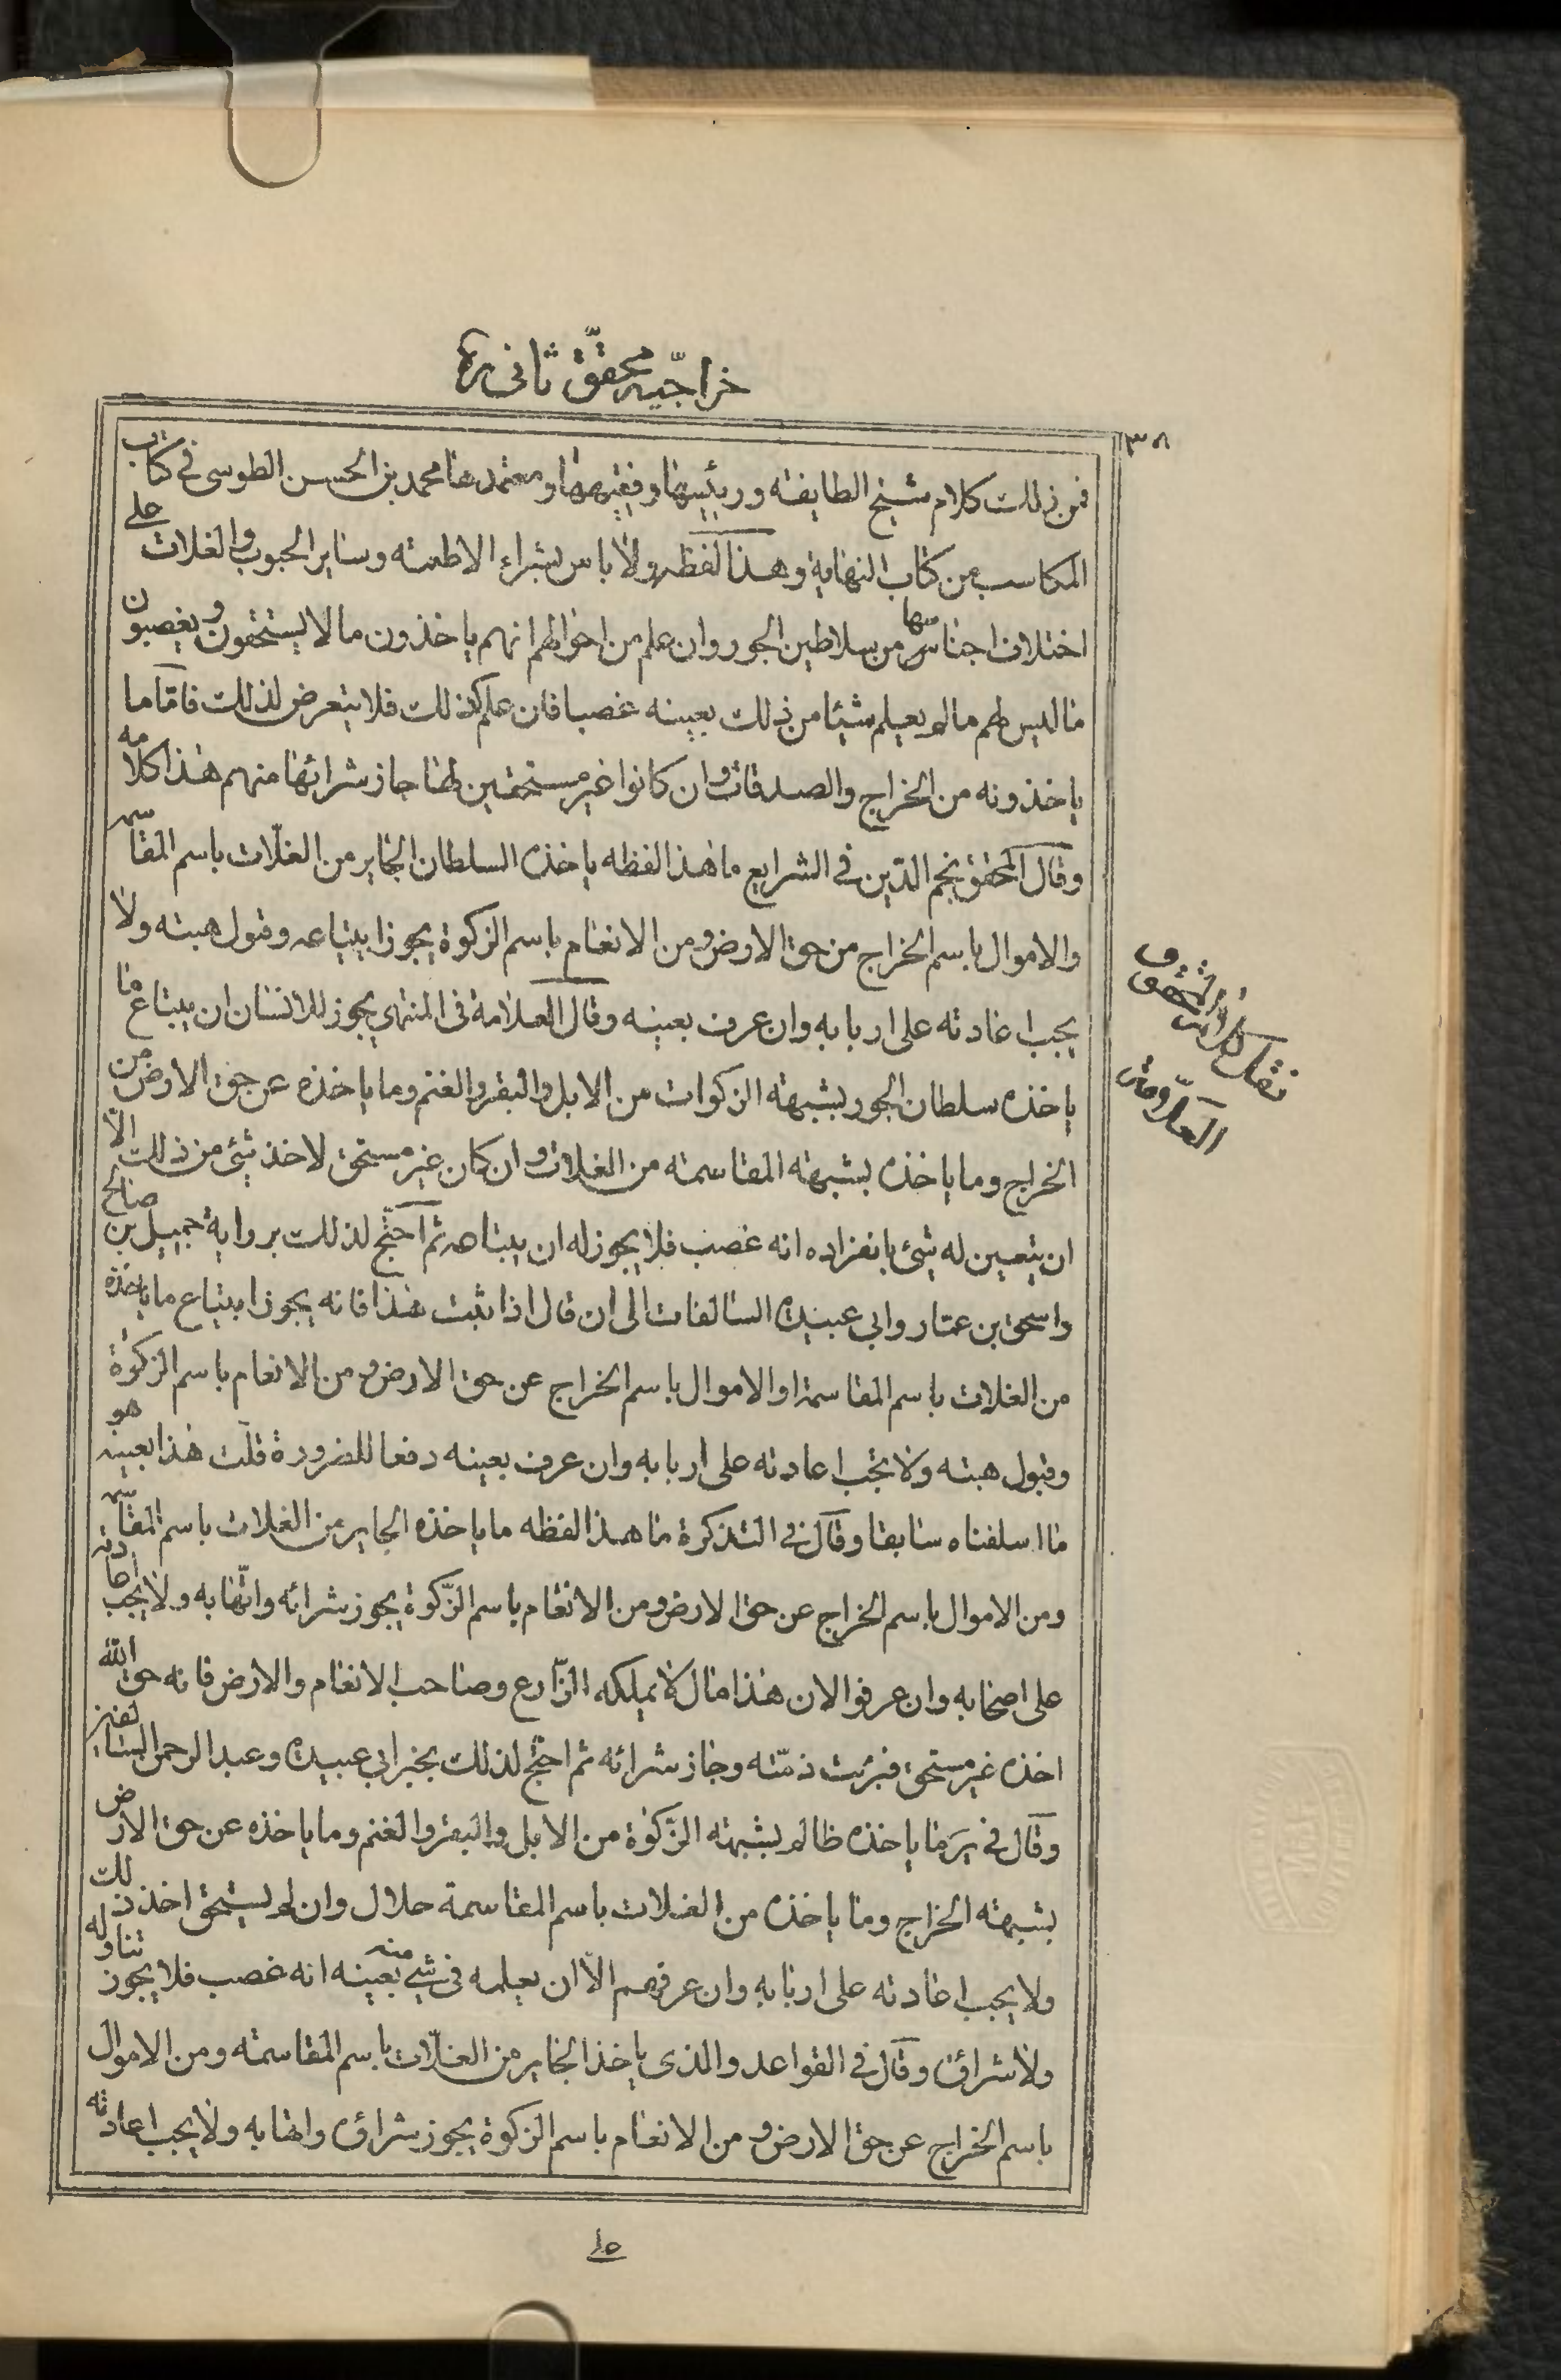 خراجيه محقّق ثانى ره
٣٨
فمن ذلك كلام شيخ الطايفة ورئيسها وفقيهها ومعتمدها محمد بن الحسن الطوسى في كتاب
المكاسب من كتاب النهاية وهذا لفظه ولا باس بشراء الاطعمة وساير الحبوب والغلات على
اختلاف اجناسها من سلاطين الجور وان علم من احوالهم انهم ياخذون ما لا يستحقون ويغصبون
ما ليس لهم ما لم يعلم شيئا من ذلك بعينه غصبا فان علم كذلك فلا يتعرض لذلك فامّا ما
ياخذونه من الخراج والصدقات وان كانوا غير مستحقين لها جاز شرائها منهم هذا كلامه
وقال المحقق نجم الدّين في الشرايع ما هذا لفظه ياخذه السلطان الجاير من الغلّات باسم المقاسمه
والاموال باسم الخراج من حق الارض ومن الانعام باسم الزكوة يجوز ابتياعه وقبول هبته ولا
يجب اعادته على اربابه وان عرف بعينه وقال العلامة فى المنتهى يجوز للانسان ان يبتاع ما
ياخذه سلطان الجور بشبهة الزكوات من الابل والبقر والغنم وما ياخذه عن حق الارض من
الخراج وما ياخذه بشبهة المقاسمة من الغلات وان كان غير مستحق لاخذ شئ من ذلك الّا
ان يتعين له شئ بانفراده انه غصب فلا يجوز له ان يبتاعه ثم احتج لذلك برواية جميل بن صالح
واسحق بن عمّار وابى عبيدة السالفات الى ان قال اذا ثبت هذا فانه يجوز ابتياع ما ياخذه
من الغلات باسم المقاسمة او الاموال باسم الخراج عن حق الارض ومن الانعام باسم الزكوة
وقبول هبته ولا تجب اعادته على اربابه وان عرف بعينه دفعا للضرورة قلت هذا بعينه هو
ما اسلفناه سابقا وقال في التذكرة ما هذا لفظه ما ياخذه الجاير من الغلات باسم المقاسمه
ومن الاموال باسم الخراج عن حق الارض ومن الانعام باسم الزّكوة يجوز شرائه واتّهابه ولا يجب اعادته
على اصحابه وان عرفوا لان هذا مال لا يملكه الزّارع وصاحب الانعام والارض فانه حق الله
اخذه غير مستحق فبرئت ذمّته وجاز شرائه ثم احتج لذلك بخبر ابي عبيدة وعبد الرحمن السا
وقال في ير ما ياخذه ظالم بشبهة الزّكوة من الابل والبقر والغنم وما ياخذه عن حق الارض
بشبهة الخراج وما ياخذه من الغلات باسم المقاسمة حلال وان لم يستحق اخذ ذلك
ولا يجب اعادته على اربابه وان عرفهم الّا ان يعلمه فى شئ منه بعينه انه غصب فلا يجوز تناوله
ولا شراؤه وقال في القواعد والذى ياخذ الجاير من الغلّات باسم المقاسمة ومن الاموال
باسم الخراج عن حق الارض ومن الانعام باسم الزكوة يجوز شراؤه واتهابه ولا يجب اعادته
نقل كلام
العلّامة